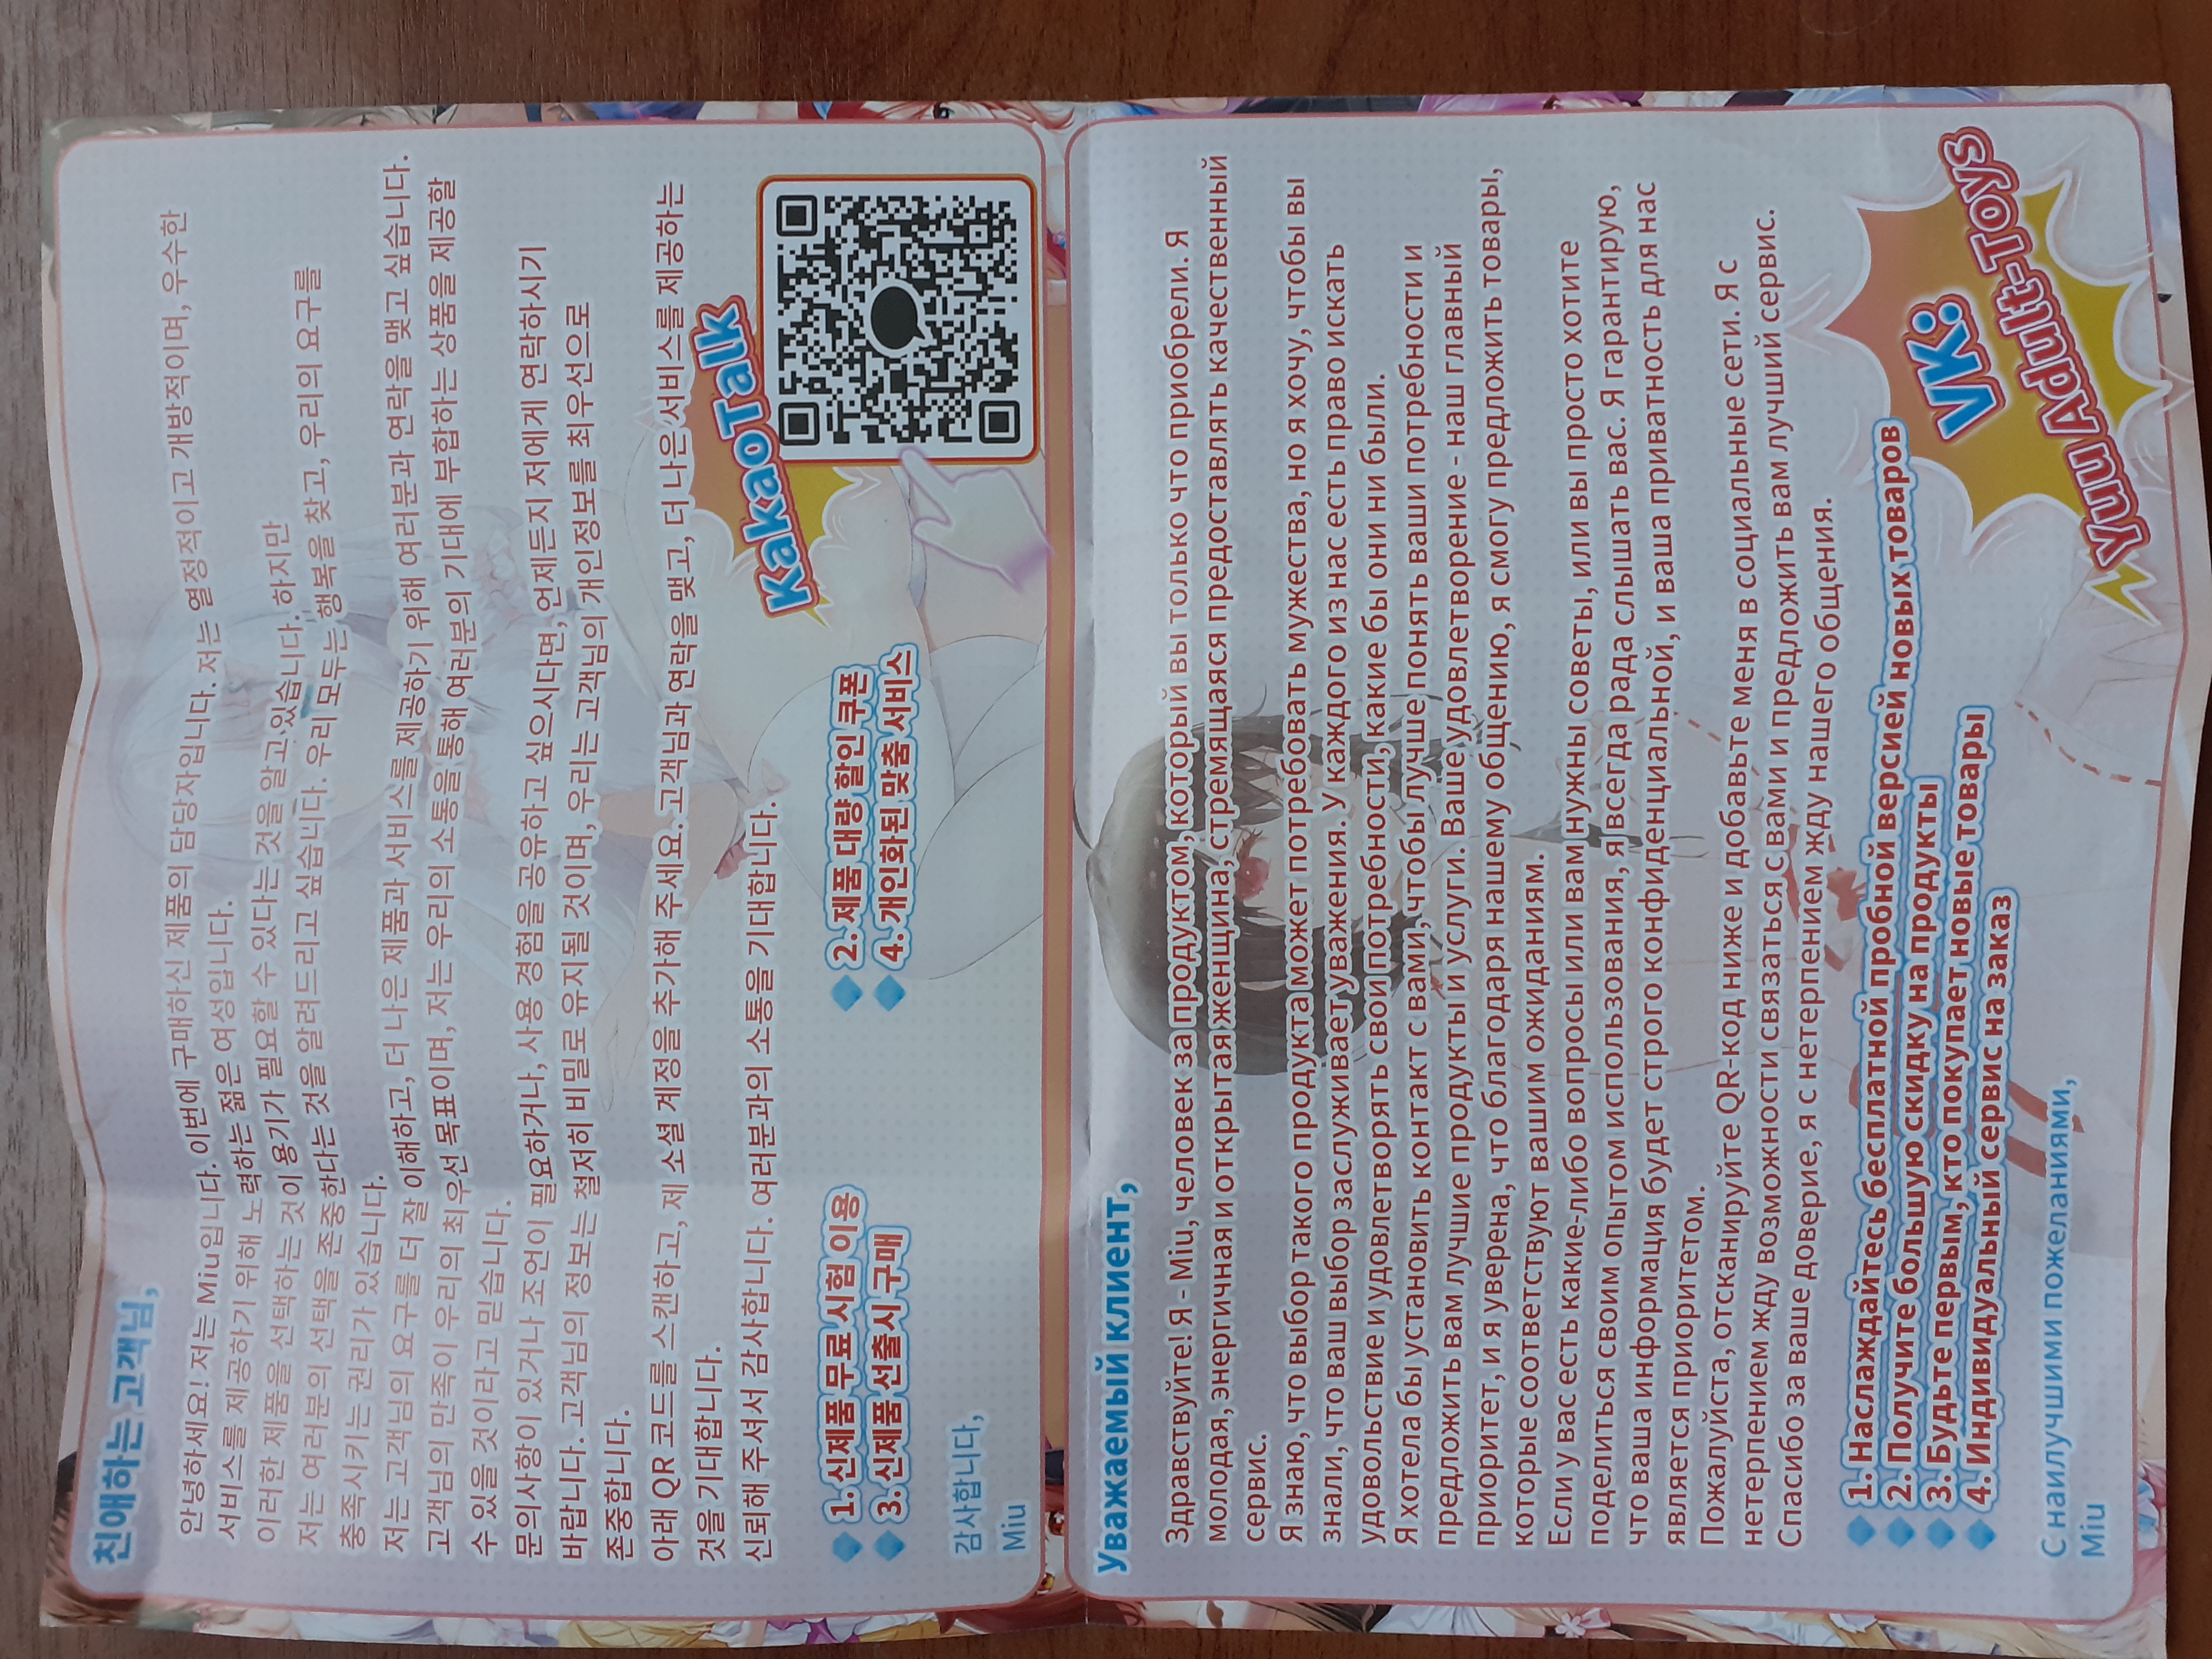 친애하는 고객님,
안녕하세요! 저는 Miu입니다. 이번에 구매하신 제품의 담당자입니다. 저는 열정적이고 개방적이며, 우수한
서비스를 제공하기 위해 노력하는 젊은 여성입니다.
이러한 제품을 선택하는 것이 용기가 필요할 수 있다는 것을 알고 있습니다. 하지만
저는 여러분의 선택을 존중한다는 것을 알려드리고 싶습니다. 우리 모두는 행복을 찾고, 우리의 요구를
충족시키는 권리가 있습니다.
저는 고객님의 요구를 더 잘 이해하고, 더 나은 제품과 서비스를 제공하기 위해 여러분과 연락을 맺고 싶습니다.
고객님의 만족이 우리의 최우선 목표이며, 저는 우리의 소통을 통해 여러분의 기대에 부합하는 상품을 제공할
수 있을 것이라고 믿습니다.
문의사항이 있거나 조언이 필요하거나, 사용 경험을 공유하고 싶으시다면, 언제든지 저에게 연락하시기
바랍니다. 고객님의 정보는 철저히 비밀로 유지될 것이며, 우리는 고객님의 개인정보를 최우선으로
존중합니다.
아래 QR 코드를 스캔하고, 제 소셜 계정을 추가해 주세요. 고객님과 연락을 맺고, 더 나은 서비스를 제공하는
것을 기대합니다.
신뢰해 주셔서 감사합니다. 여러분과의 소통을 기대합니다.
KakaoTalk
1. 신제품 무료 시험 이용
2. 제품 대량 할인 쿠폰
3. 신제품 선출시 구매
4. 개인화된 맞춤 서비스
감사합니다,
Miu
Уважаемый клиент,
Здравствуйте! Я - Miu, человек за продуктом, который вы только что приобрели. Я
молодая, энергичная и открытая женщина, стремящаяся предоставлять качественный
сервис.
Я знаю, что выбор такого продукта может потребовать мужества, но я хочу, чтобы вы
знали, что ваш выбор заслуживает уважения. У каждого из нас есть право искать
удовольствие и удовлетворять свои потребности, какие бы они ни были.
Я хотела бы установить контакт с вами, чтобы лучше понять ваши потребности и
предложить вам лучшие продукты и услуги. Ваше удовлетворение - наш главный
приоритет, и я уверена, что благодаря нашему общению, я смогу предложить товары,
которые соответствуют вашим ожиданиям.
Если у вас есть какие-либо вопросы или вам нужны советы, или вы просто хотите
поделиться своим опытом использования, я всегда рада слышать вас. Я гарантирую,
что ваша информация будет строго конфиденциальной, и ваша приватность для нас
является приоритетом.
Пожалуйста, отсканируйте QR-код ниже и добавьте меня в социальные сети. Я с
нетерпением жду возможности связаться с вами и предложить вам лучший сервис.
Спасибо за ваше доверие, я с нетерпением жду нашего общения.
1. Наслаждайтесь бесплатной пробной версией новых товаров
2. Получите большую скидку на продукты
3. Будьте первым, кто покупает новые товары
4. Индивидуальный сервис на заказ
VK:
Yuu Adult-Toys
С наилучшими пожеланиями,
Miu